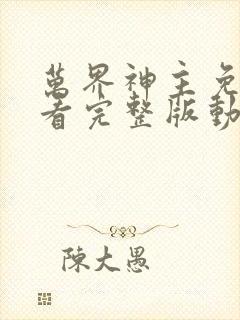 萬界神主免
看完整版動
陳大愚